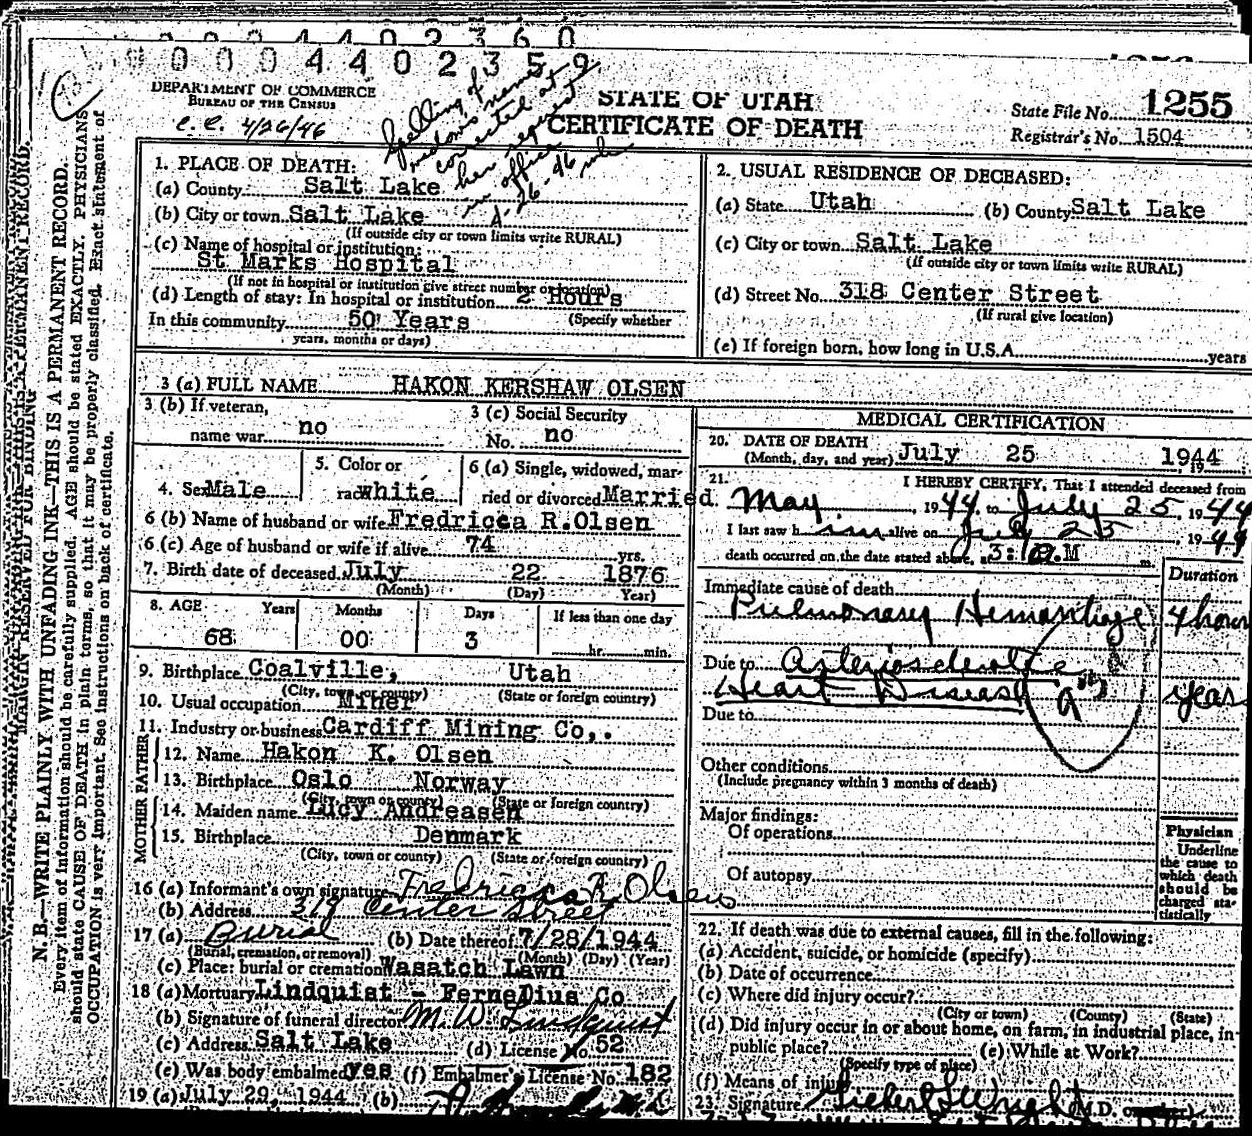 0 0 0 4 4 0 2 3 6 0
0 0 0 4 4 0 2 3 5 9
DEPARTMENT OF COMMERCE
BUREAU OF THE CENSUS
c. c. 4/26/46
Spelling of
widow's name
corrected at
her request
in office
4-26-46
STATE OF UTAH
CERTIFICATE OF DEATH
State File No. 1255
Registrar's No. 1504
MARGIN RESERVED FOR BINDING
N. B.—WRITE PLAINLY WITH UNFADING INK—THIS IS A PERMANENT RECORD.
Every item of information should be carefully supplied. AGE should be stated EXACTLY. PHYSICIANS
should state CAUSE OF DEATH in plain terms, so that it may be properly classified. Exact statement of
OCCUPATION is very important. See instructions on back of certificate.
1. PLACE OF DEATH:
(a) County Salt Lake
(b) City or town Salt Lake
(If outside city or town limits write RURAL)
(c) Name of hospital or institution:
St Marks Hospital
(If not in hospital or institution give street number or location)
(d) Length of stay: In hospital or institution 2 Hours
In this community 50 Years (Specify whether
years, months or days)
2. USUAL RESIDENCE OF DECEASED:
(a) State Utah (b) County Salt Lake
(c) City or town Salt Lake
(If outside city or town limits write RURAL)
(d) Street No. 318 Center Street
(If rural give location)
(e) If foreign born, how long in U.S.A. years
3 (a) FULL NAME HAKON KERSHAW OLSEN
3 (b) If veteran,
name war no
3 (c) Social Security
No. no
4. Sex Male
5. Color or
race White
6 (a) Single, widowed, mar-
ried or divorced Married
6 (b) Name of husband or wife Fredricca R.Olsen
6 (c) Age of husband or wife if alive 74 yrs.
7. Birth date of deceased July 22 1876
(Month) (Day) Year)
8. AGE Years Months Days If less than one day
68 00 3 hr. min.
9. Birthplace Coalville, Utah
(City, town or county) (State or foreign country)
10. Usual occupation Miner
11. Industry or business Cardiff Mining Co,.
FATHER
12. Name Hakon K. Olsen
13. Birthplace Oslo Norway
(City, town or county) (State or foreign country)
MOTHER
14. Maiden name Lucy Andreasen
15. Birthplace Denmark
(City, town or county) (State or foreign country)
16 (a) Informant's own signature Fredricca R. Olsen
(b) Address 319 Center Street
17 (a) Burial (b) Date thereof 7/28/1944
(Burial, cremation, or removal) (Month) (Day) (Year)
(c) Place: burial or cremation Wasatch Lawn
18 (a) Mortuary Lindquist - FerneDius Co
(b) Signature of funeral director M. W. Lindquist
(c) Address Salt Lake (d) License No 52
(e) Was body embalmed yes (f) Embalmer's License No. 182
19 (a) July 29, 1944 (b)
MEDICAL CERTIFICATION
20. DATE OF DEATH
(Month, day, and year) July 25 1944
21. I HEREBY CERTIFY, That I attended deceased from
May, 1944 to July 25, 1944
I last saw him alive on July 25, 1944
death occurred on the date stated above, at M m.
Duration
Immediate cause of death
Pulmonary Hemorrhage 4 hours
Due to Arteriosclerotic
Heart Disease years
Due to
Other conditions
(Include pregnancy within 3 months of death)
Major findings:
Of operations
Of autopsy
Physician
Underline
the cause to
which death
should be
charged sta-
tistically
22. If death was due to external causes, fill in the following:
(a) Accident, suicide, or homicide (specify)
(b) Date of occurrence
(c) Where did injury occur?
(City or town) (County) (State)
(d) Did injury occur in or about home, on farm, in industrial place, in
public place? (e) While at Work?
(Specify type of place)
(f) Means of injury
23. Signature (M.D. or other)